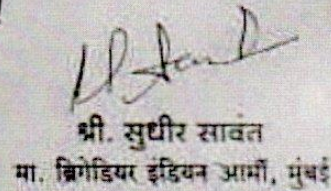 श्री. सुधीर सावंत
मा. ब्रिगेडियर इंडियन आर्मी, मुंबई